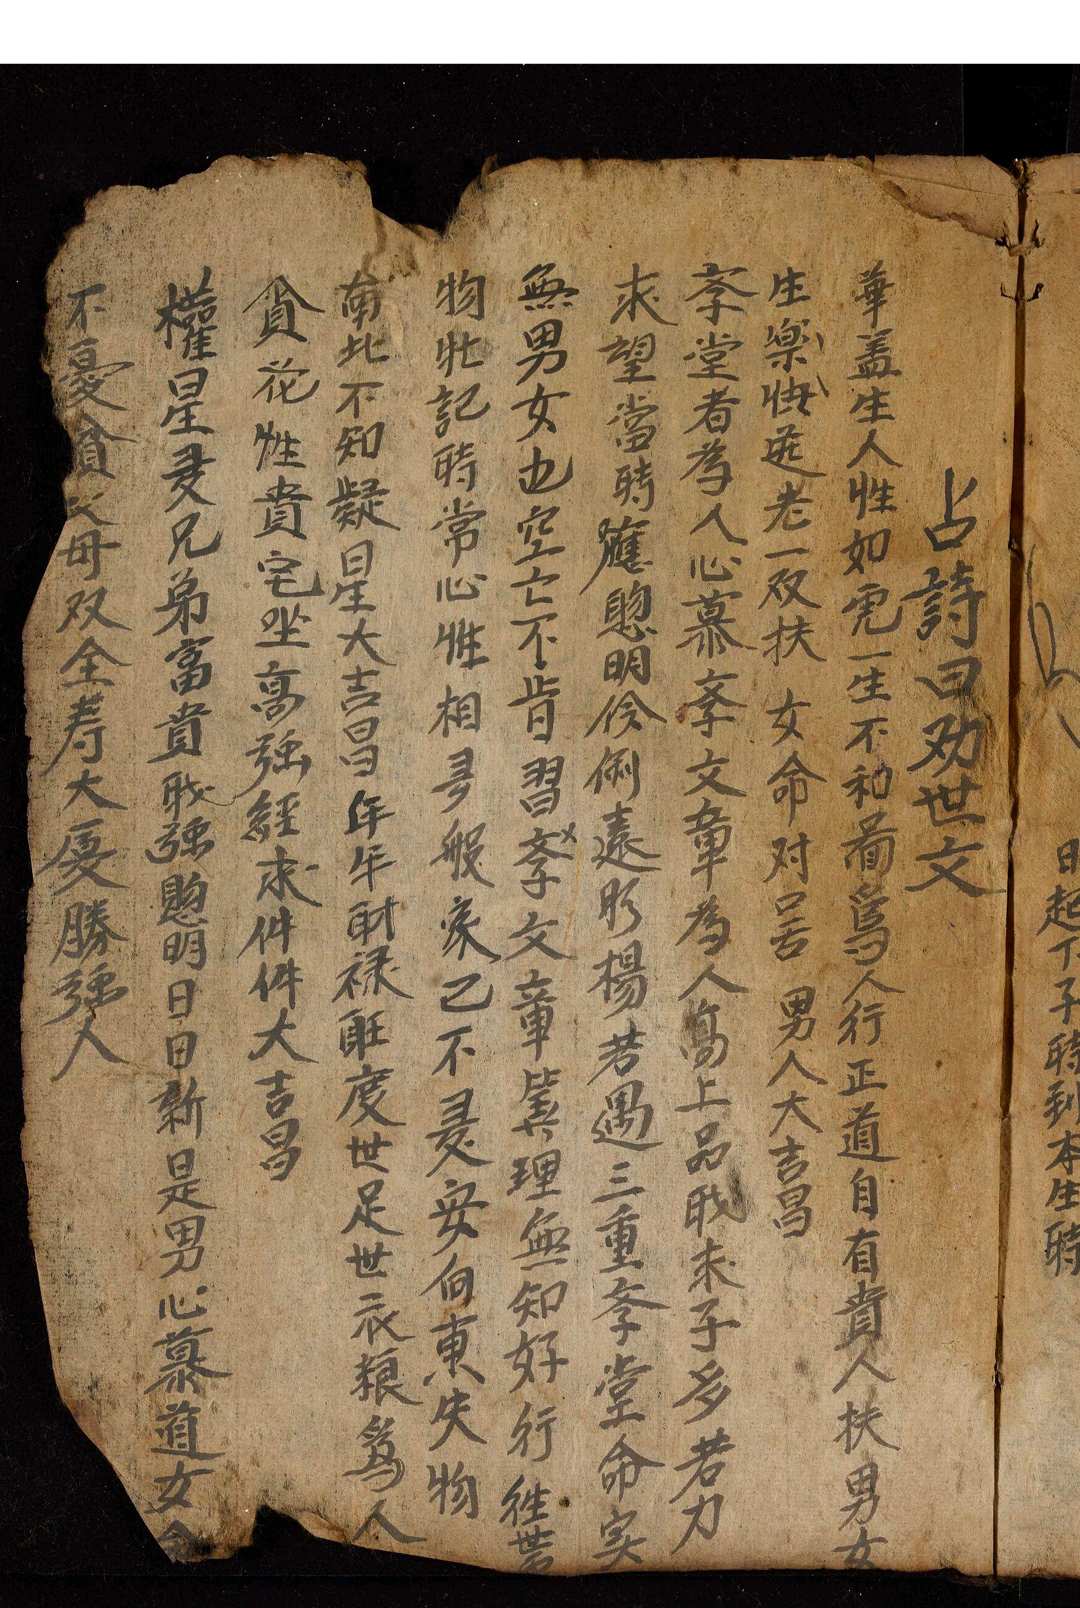 日起下子時到本生時
占詩曰劝世文
華盖生人性如兎一生不和畨爲人行正道自有貴人扶男女
生樂快延老一双扶 女命对吕 男人大吉昌
斈堂者為人心慕斈文章為人高上品戝求子多若力
求望當時應聦明伶俐遠形楊若遇三重斈堂命实
無男女也空亡不肯習斈文章䒭理無知好行徃
物牡記時常心性相爭般家己不是安向東失物
南北不知疑星大吉昌年年財禄旺度世足世衣粮爲人
貪花性貴宅坐高強經求件件大吉昌
權星是兄弟富貴戝強聦明日日新是男心慕道女命
不憂貧父母双全寿大屋勝強人